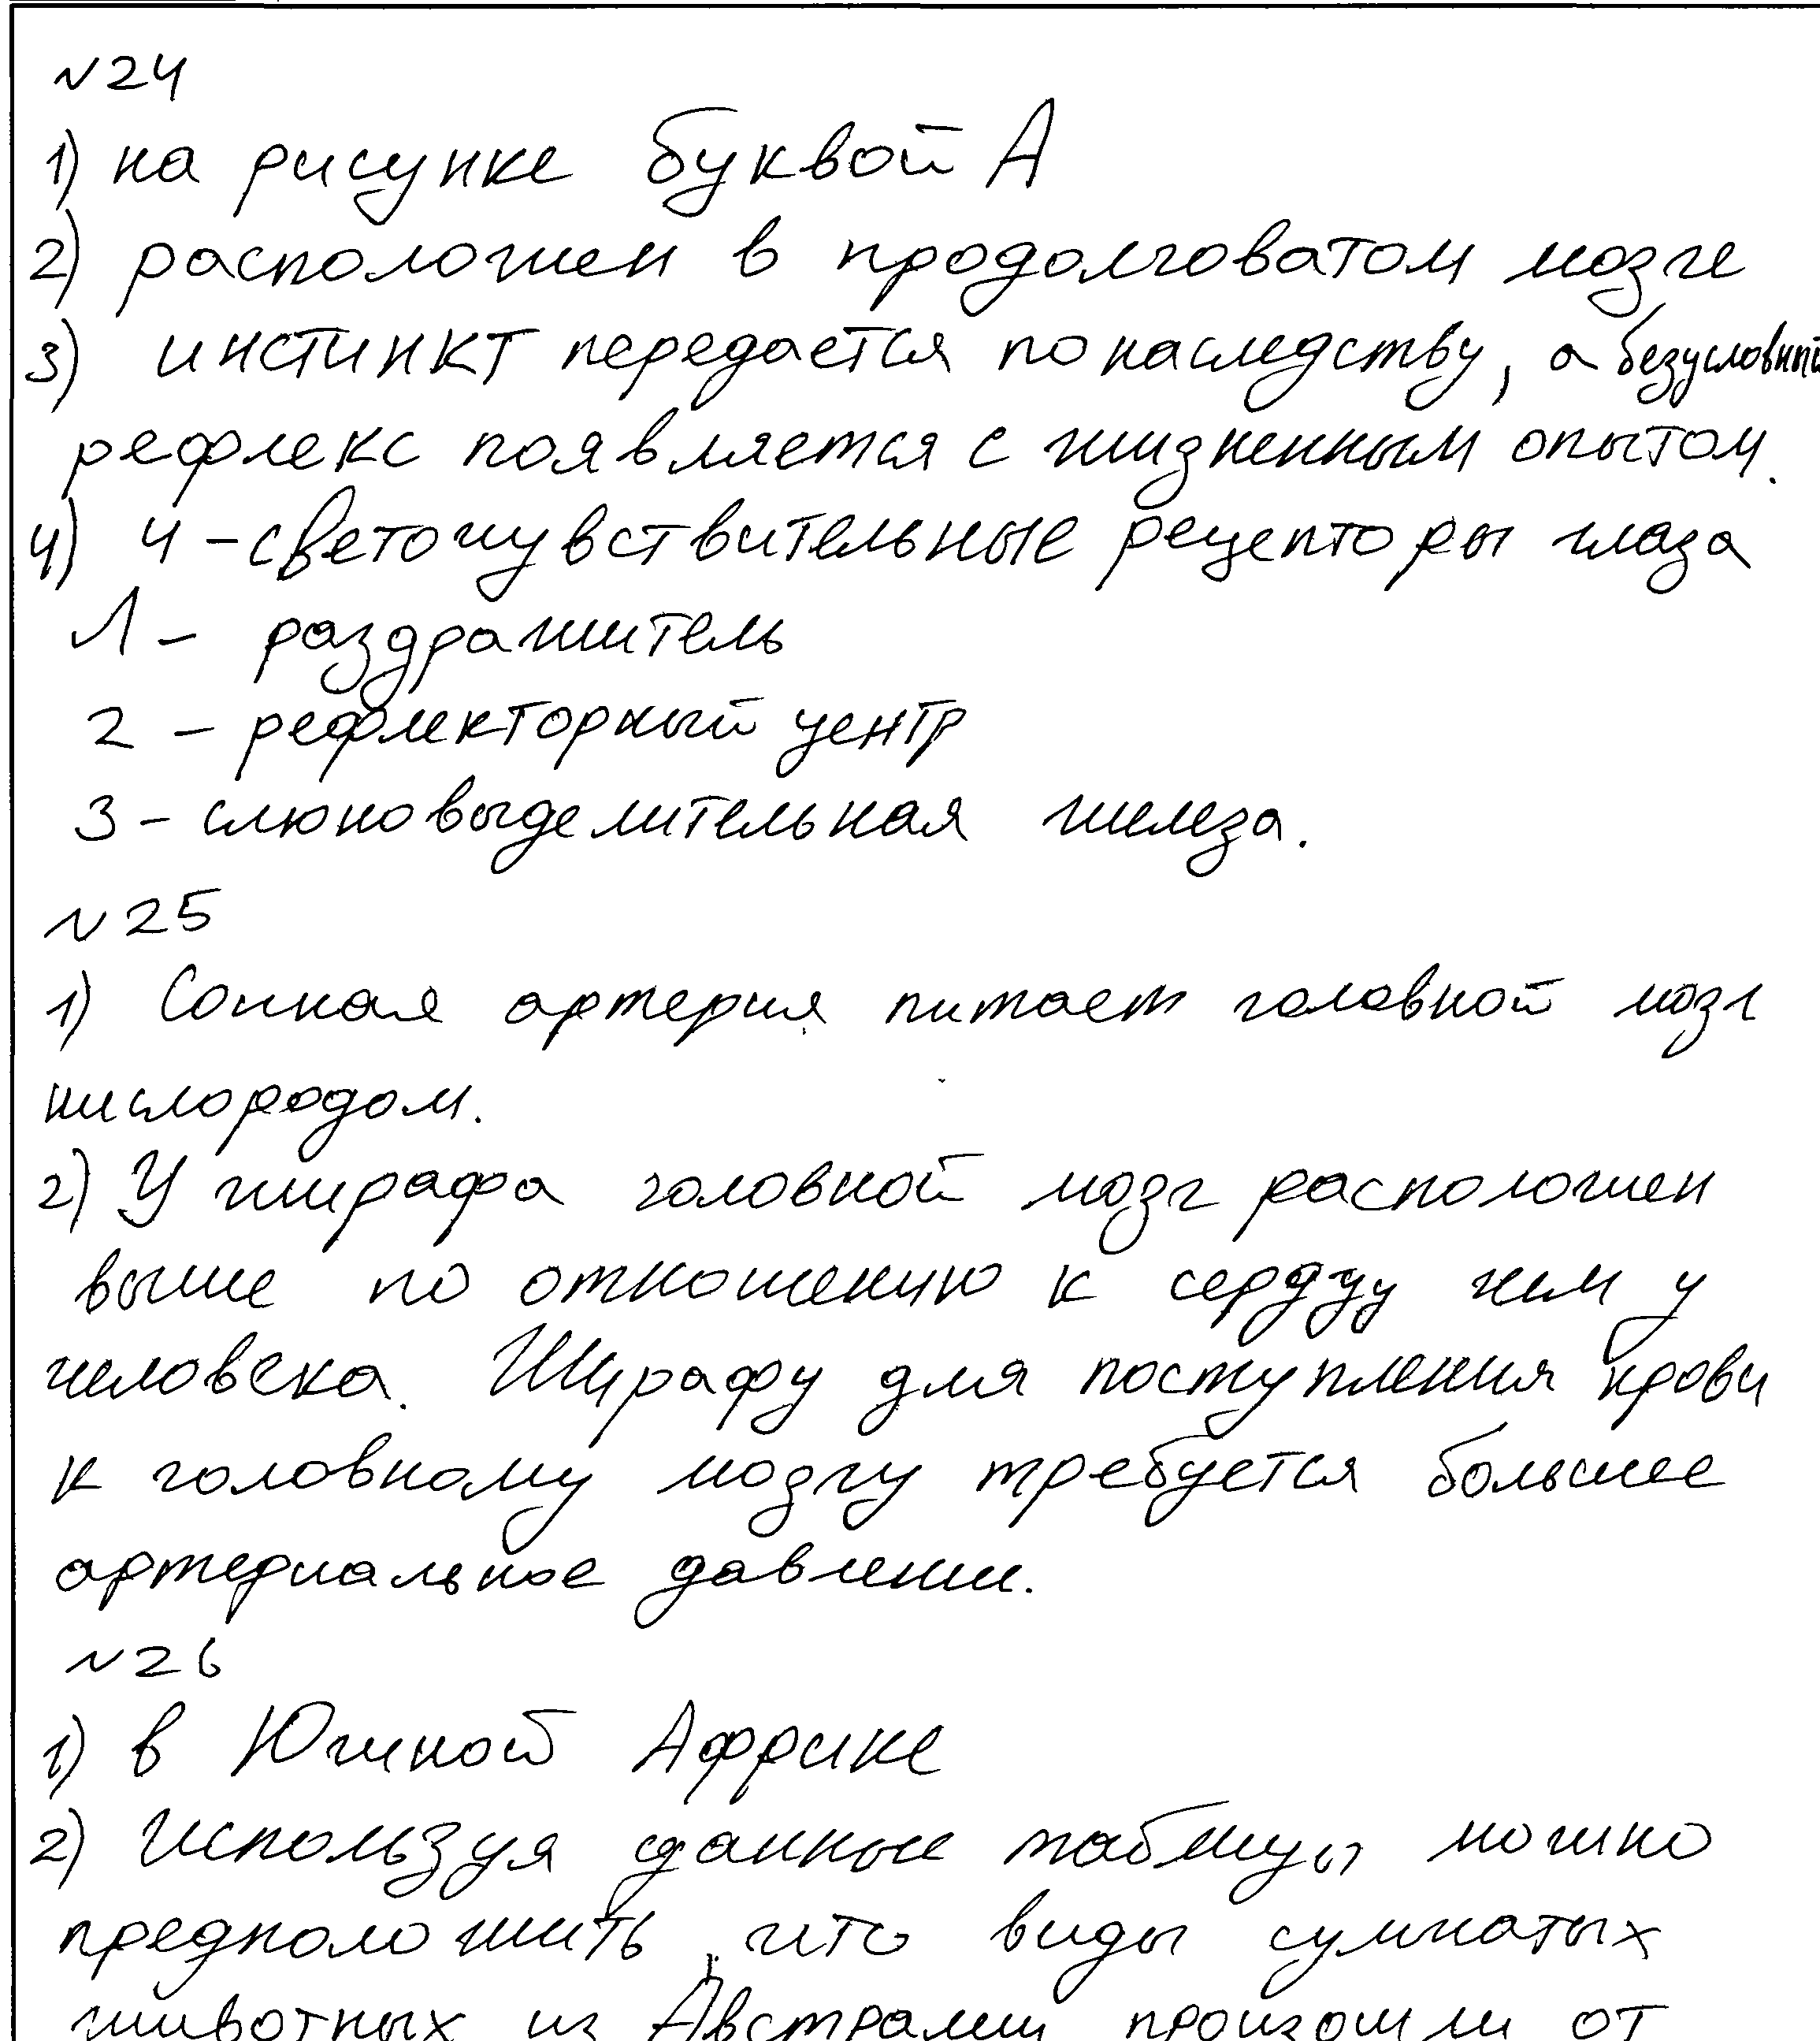 №24
1) на рисунке буквой А
2) расположен в продолговатом мозге
3) инстинкт передается по наследству, а безусловный
рефлекс появляется с жизненным опытом.
4) 4 – светочувствительные рецепторы глаза
1 – раздражитель
2 – рефлекторный центр
3 – слюновыделительная железа.
№25
1) Сонная артерия питает головной мозг
кислородом.
2) У жирафа головной мозг расположен
выше по отношению к сердцу чем у
человека. Жирафу для поступления крови
к головному мозгу требуется большее
артериальное давление.
№26
1) в Южной Африке
2) Используя данные таблицы можно
предположить, что виды сумчатых
животных из Австралии произошли от